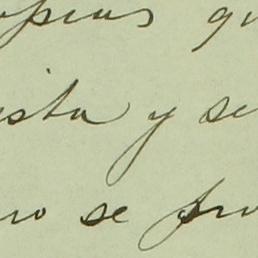 opias qu
ista y se
no se pro